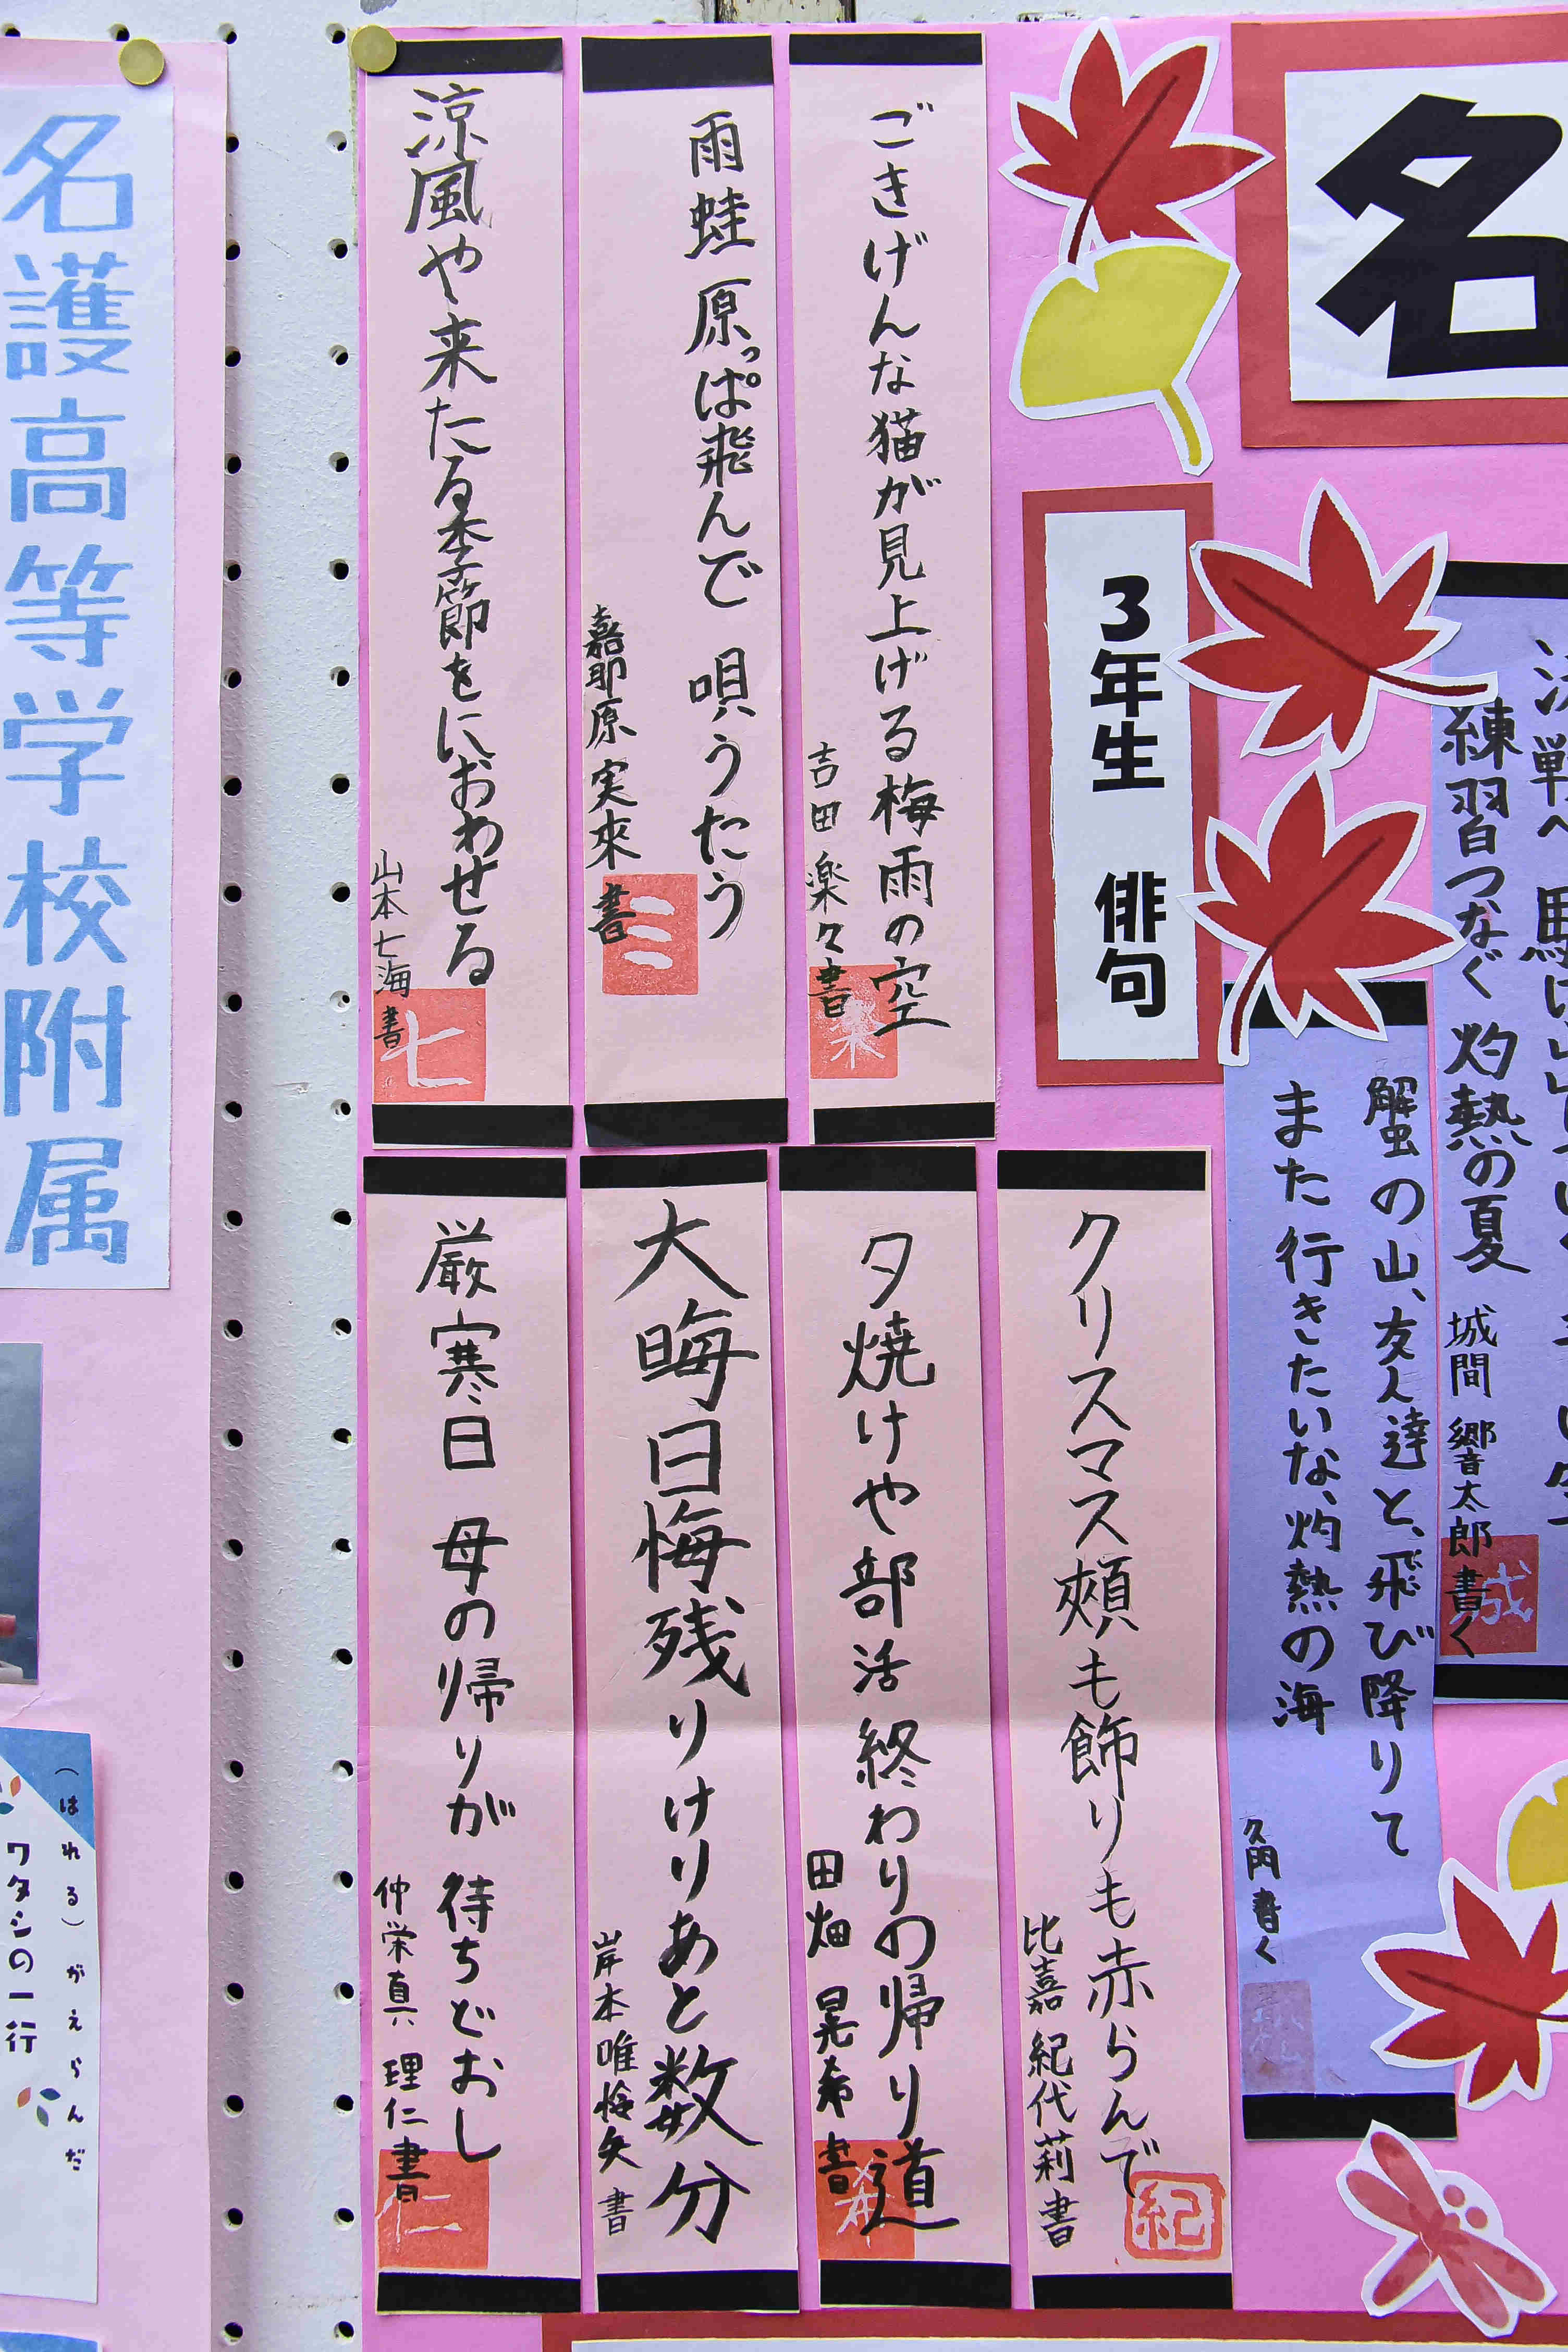 名
3年生 俳句
練習つなぐ 灼熱の夏
城間 響太郎 書く
蟹の山、友人達と、飛び降りて
また行きたいな、灼熱の海
久閃 書く
ごきげんな猫が見上げる梅雨の空
吉田 楽久 書
楽
雨蛙 原っぱ飛んで 唄うたう
嘉那原 実來 書
三
涼風や来たる季節をにおわせる
山本 七海 書
七
クリスマス頰も飾りも赤らんで
比嘉 紀代莉 書
紀
夕焼けや部活終わりの帰り道
田畑 晃希 書
希
大晦日悔残りけりあと数分
岸本 唯怜矢 書
厳寒日 母の帰りが 待ちどおし
仲栄真 理仁 書
仁
名護高等学校附属
(はれる)がえらんだ
ワタシの一行